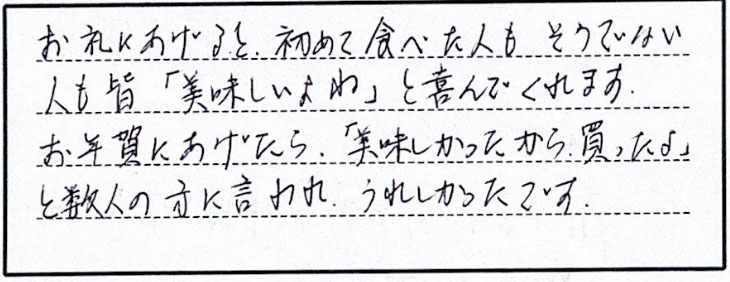 お礼にあげると、初めて食べた人もそうでない
人も皆「美味しいよね」と喜んでくれます.
お年賀にあげたら、「美味しかったから、買ったよ」
と数人の方に言われ、うれしかったです.